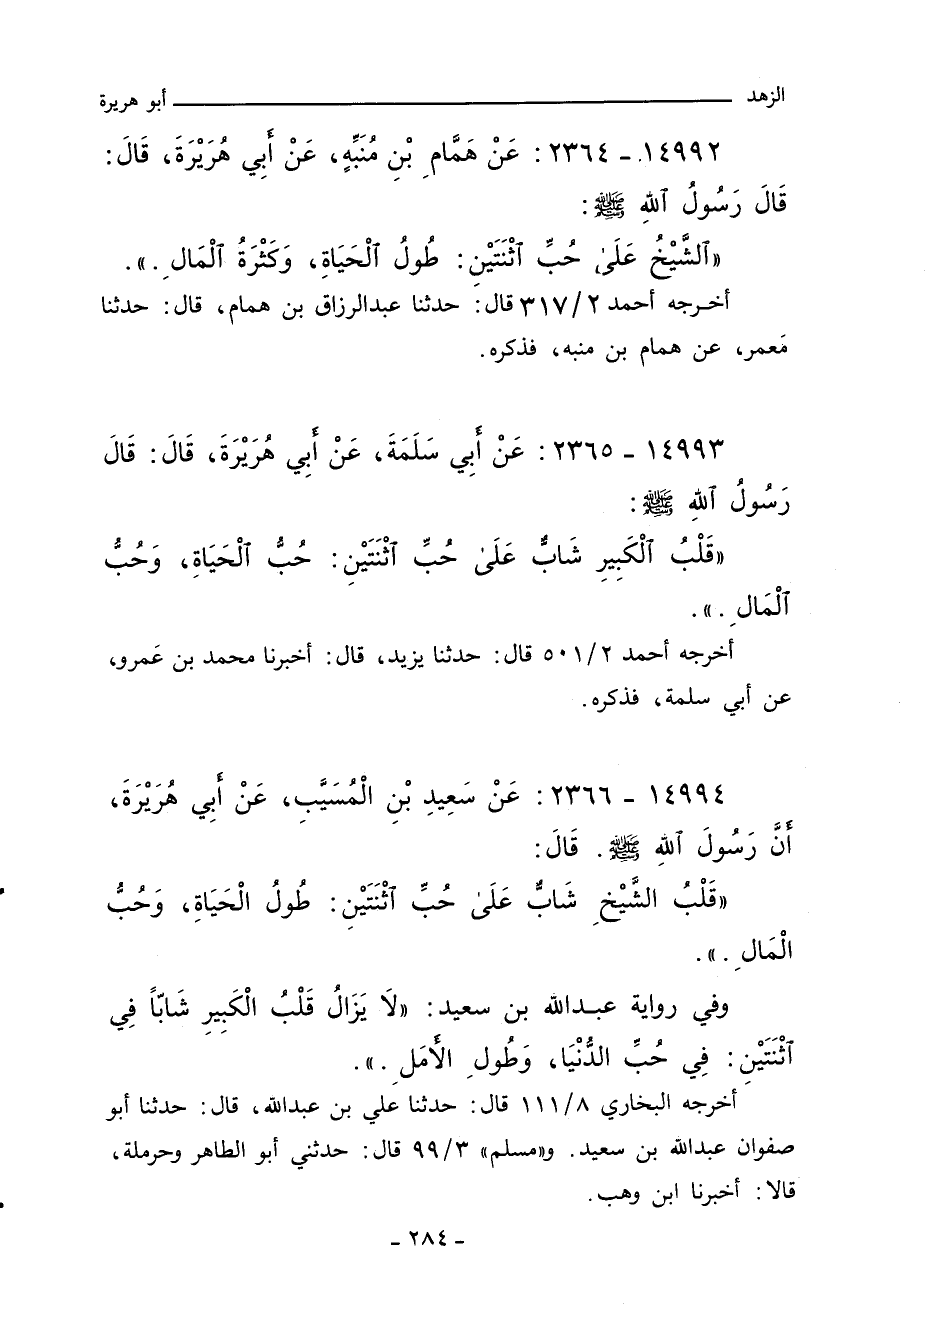 الزهد ــــــ أبو هريرة
١٤٩٩٢ - ٢٣٦٤ : عَنْ هَمَّامِ بْنِ مُنَبِّهٍ، عَنْ أَبِي هُرَيْرَةَ، قَالَ:
قَالَ رَسُولُ ٱللهِ ﷺ :
«ٱلشَّيْخُ عَلَىٰ حُبِّ ٱثْنَتَيْنِ: طُولُ ٱلْحَيَاةِ، وَكَثْرَةُ ٱلْمَالِ.».
أخرجه أحمد ٣١٧/٢ قال: حدثنا عبدالرزاق بن همام، قال: حدثنا
مَعمر، عن همام بن منبه، فذكره.
١٤٩٩٣ - ٢٣٦٥ : عَنْ أَبِي سَلَمَةَ، عَنْ أَبِي هُرَيْرَةَ، قَالَ: قَالَ
رَسُولُ ٱللهِ ﷺ :
«قَلْبُ ٱلْكَبِيرِ شَابٌّ عَلَىٰ حُبِّ ٱثْنَتَيْنِ: حُبُّ ٱلْحَيَاةِ، وَحُبُّ
ٱلْمَالِ.».
أخرجه أحمد ٥٠١/٢ قال: حدثنا يزيد، قال: أخبرنا محمد بن عَمرو،
عن أبي سلمة، فذكره.
١٤٩٩٤ - ٢٣٦٦ : عَنْ سَعِيدِ بْنِ الْمُسَيَّبِ، عَنْ أَبِي هُرَيْرَةَ،
أَنَّ رَسُولَ ٱللهِ ﷺ . قَالَ:
«قَلْبُ الشَّيْخِ شَابٌّ عَلَىٰ حُبِّ ٱثْنَتَيْنِ: طُولُ الْحَيَاةِ، وَحُبُّ
الْمَالِ.».
وفي رواية عبدالله بن سعيد: «لَا يَزَالُ قَلْبُ الْكَبِيرِ شَابّاً فِي
ٱثْنَتَيْنِ: فِي حُبِّ الدُّنْيَا، وَطُولِ الأَمَلِ.».
أخرجه البخاري ١١١/٨ قال: حدثنا علي بن عبدالله، قال: حدثنا أبو
صفوان عبدالله بن سعيد. و«مسلم» ٩٩/٣ قال: حدثني أبو الطاهر وحرملة،
قالا: أخبرنا ابن وهب.
- ٢٨٤ -